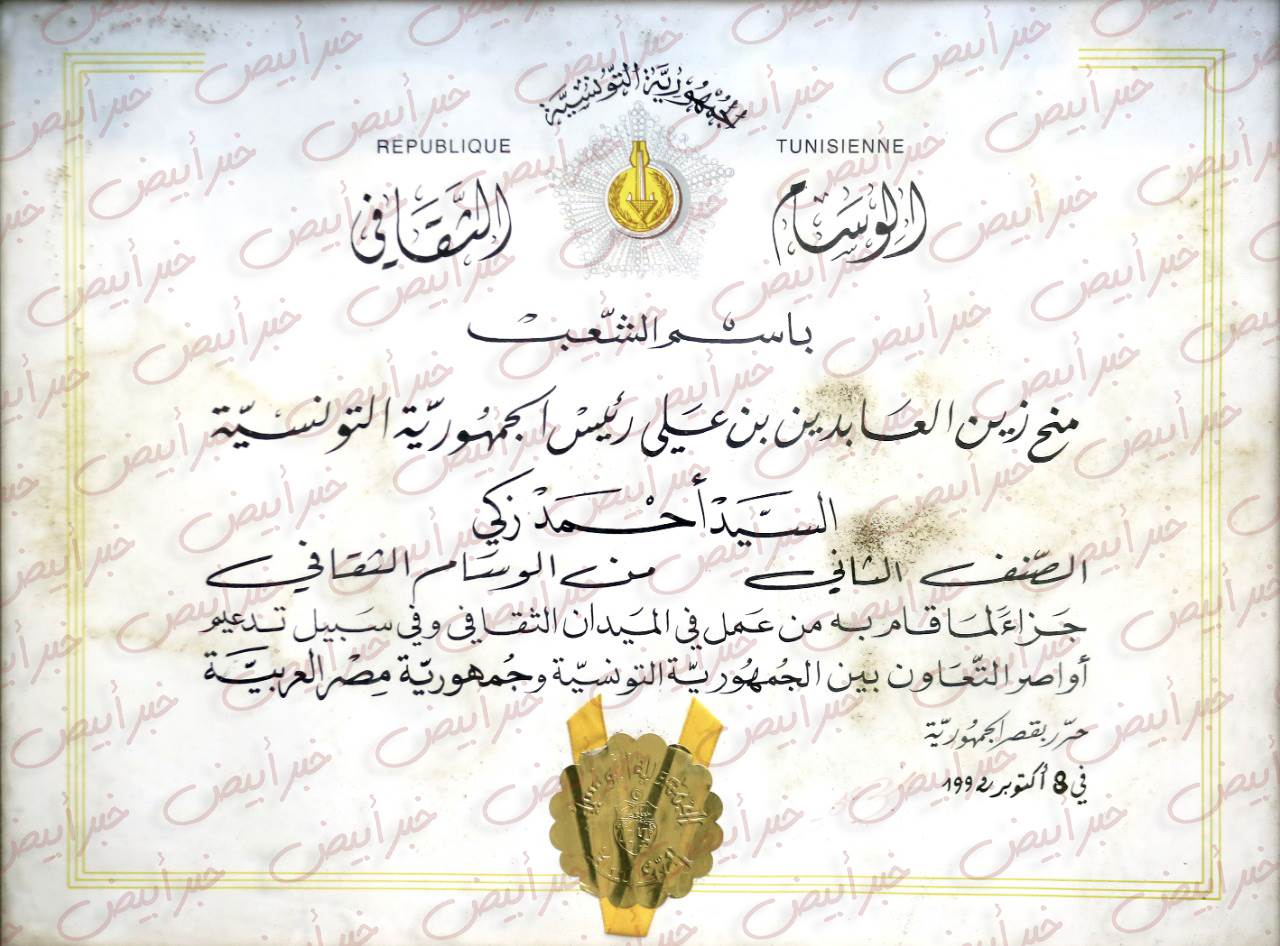 الجمهوريّة التّونسيّة
REPUBLIQUE TUNISIENNE
الوسام الثّقافي
باسم الشّعب
منح زين العابدين بن علي رئيس الجمهوريّة التونسيّة
السيّد أحمد زكي
الصّنف الثاني من الوسام الثقافي
جزاءً لما قام به من عمل في الميدان الثقافي وفي سبيل تدعيم
أواصر التّعاون بين الجمهوريّة التونسيّة وجمهوريّة مصر العربيّة
حرّر بقصر الجمهوريّة
في 8 أكتوبر 1992
خبر أبيض